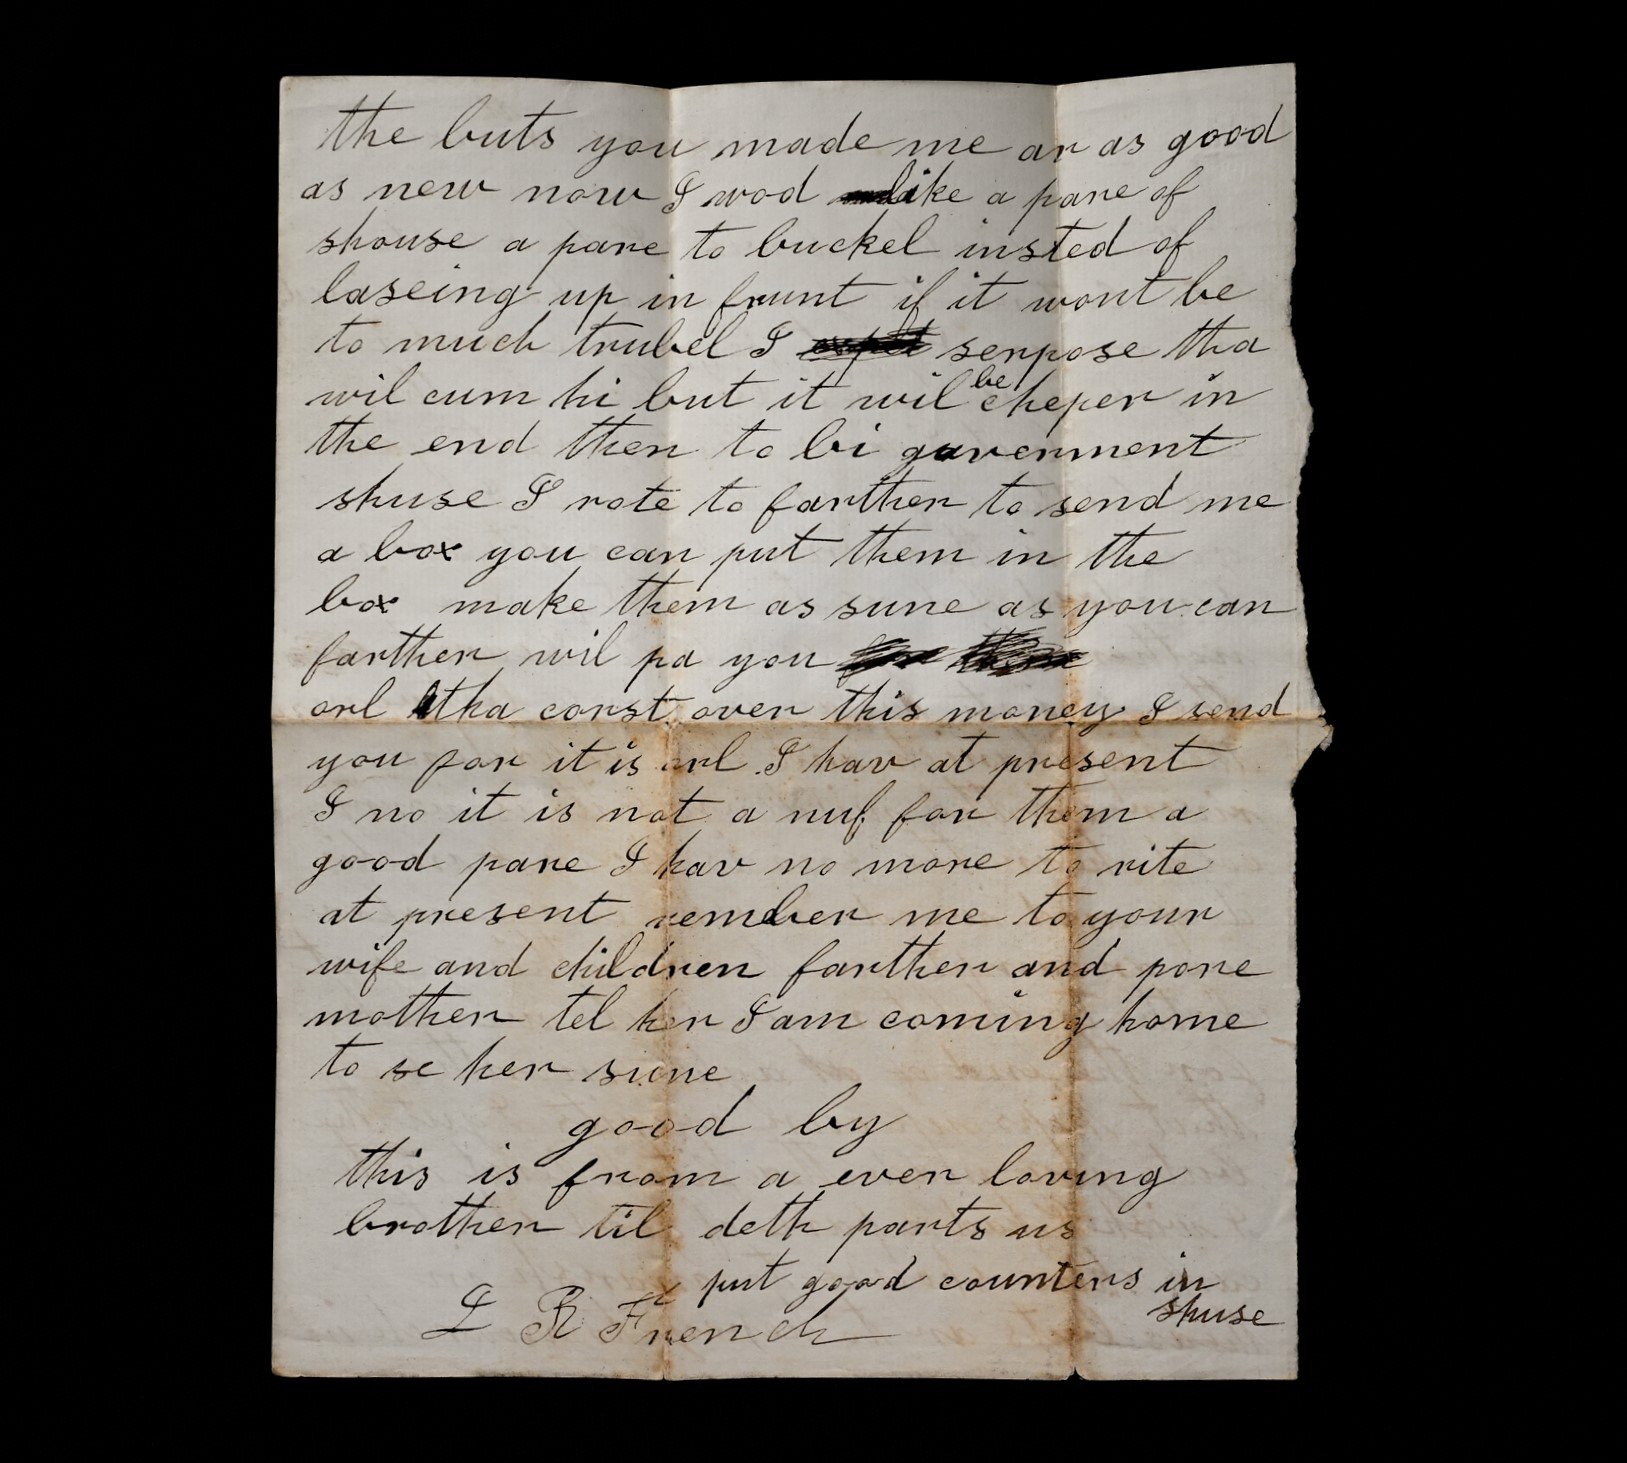 the buts you made me ar as good
as new now I wod like a pare of
shouse a pare to buckel insted of
laseing up in frunt if it wont be
to much trubel I serpose tha
wil cum hi but it wil be cheper in
the end then to bi guverment
shuse I rote to farther to send me
a box you can put them in the
box make them as sune as you can
farther wil pa you
orl tha corst over this money I send
you for it is orl I hav at present
I no it is not a nuf for them a
good pare I hav no more to rite
at present rember me to your
wife and children farther and pore
mother tel her I am coming home
to se her sune
good by
this is from a ever loving
brother til deth parts us
put good counters in
shuse
L R French